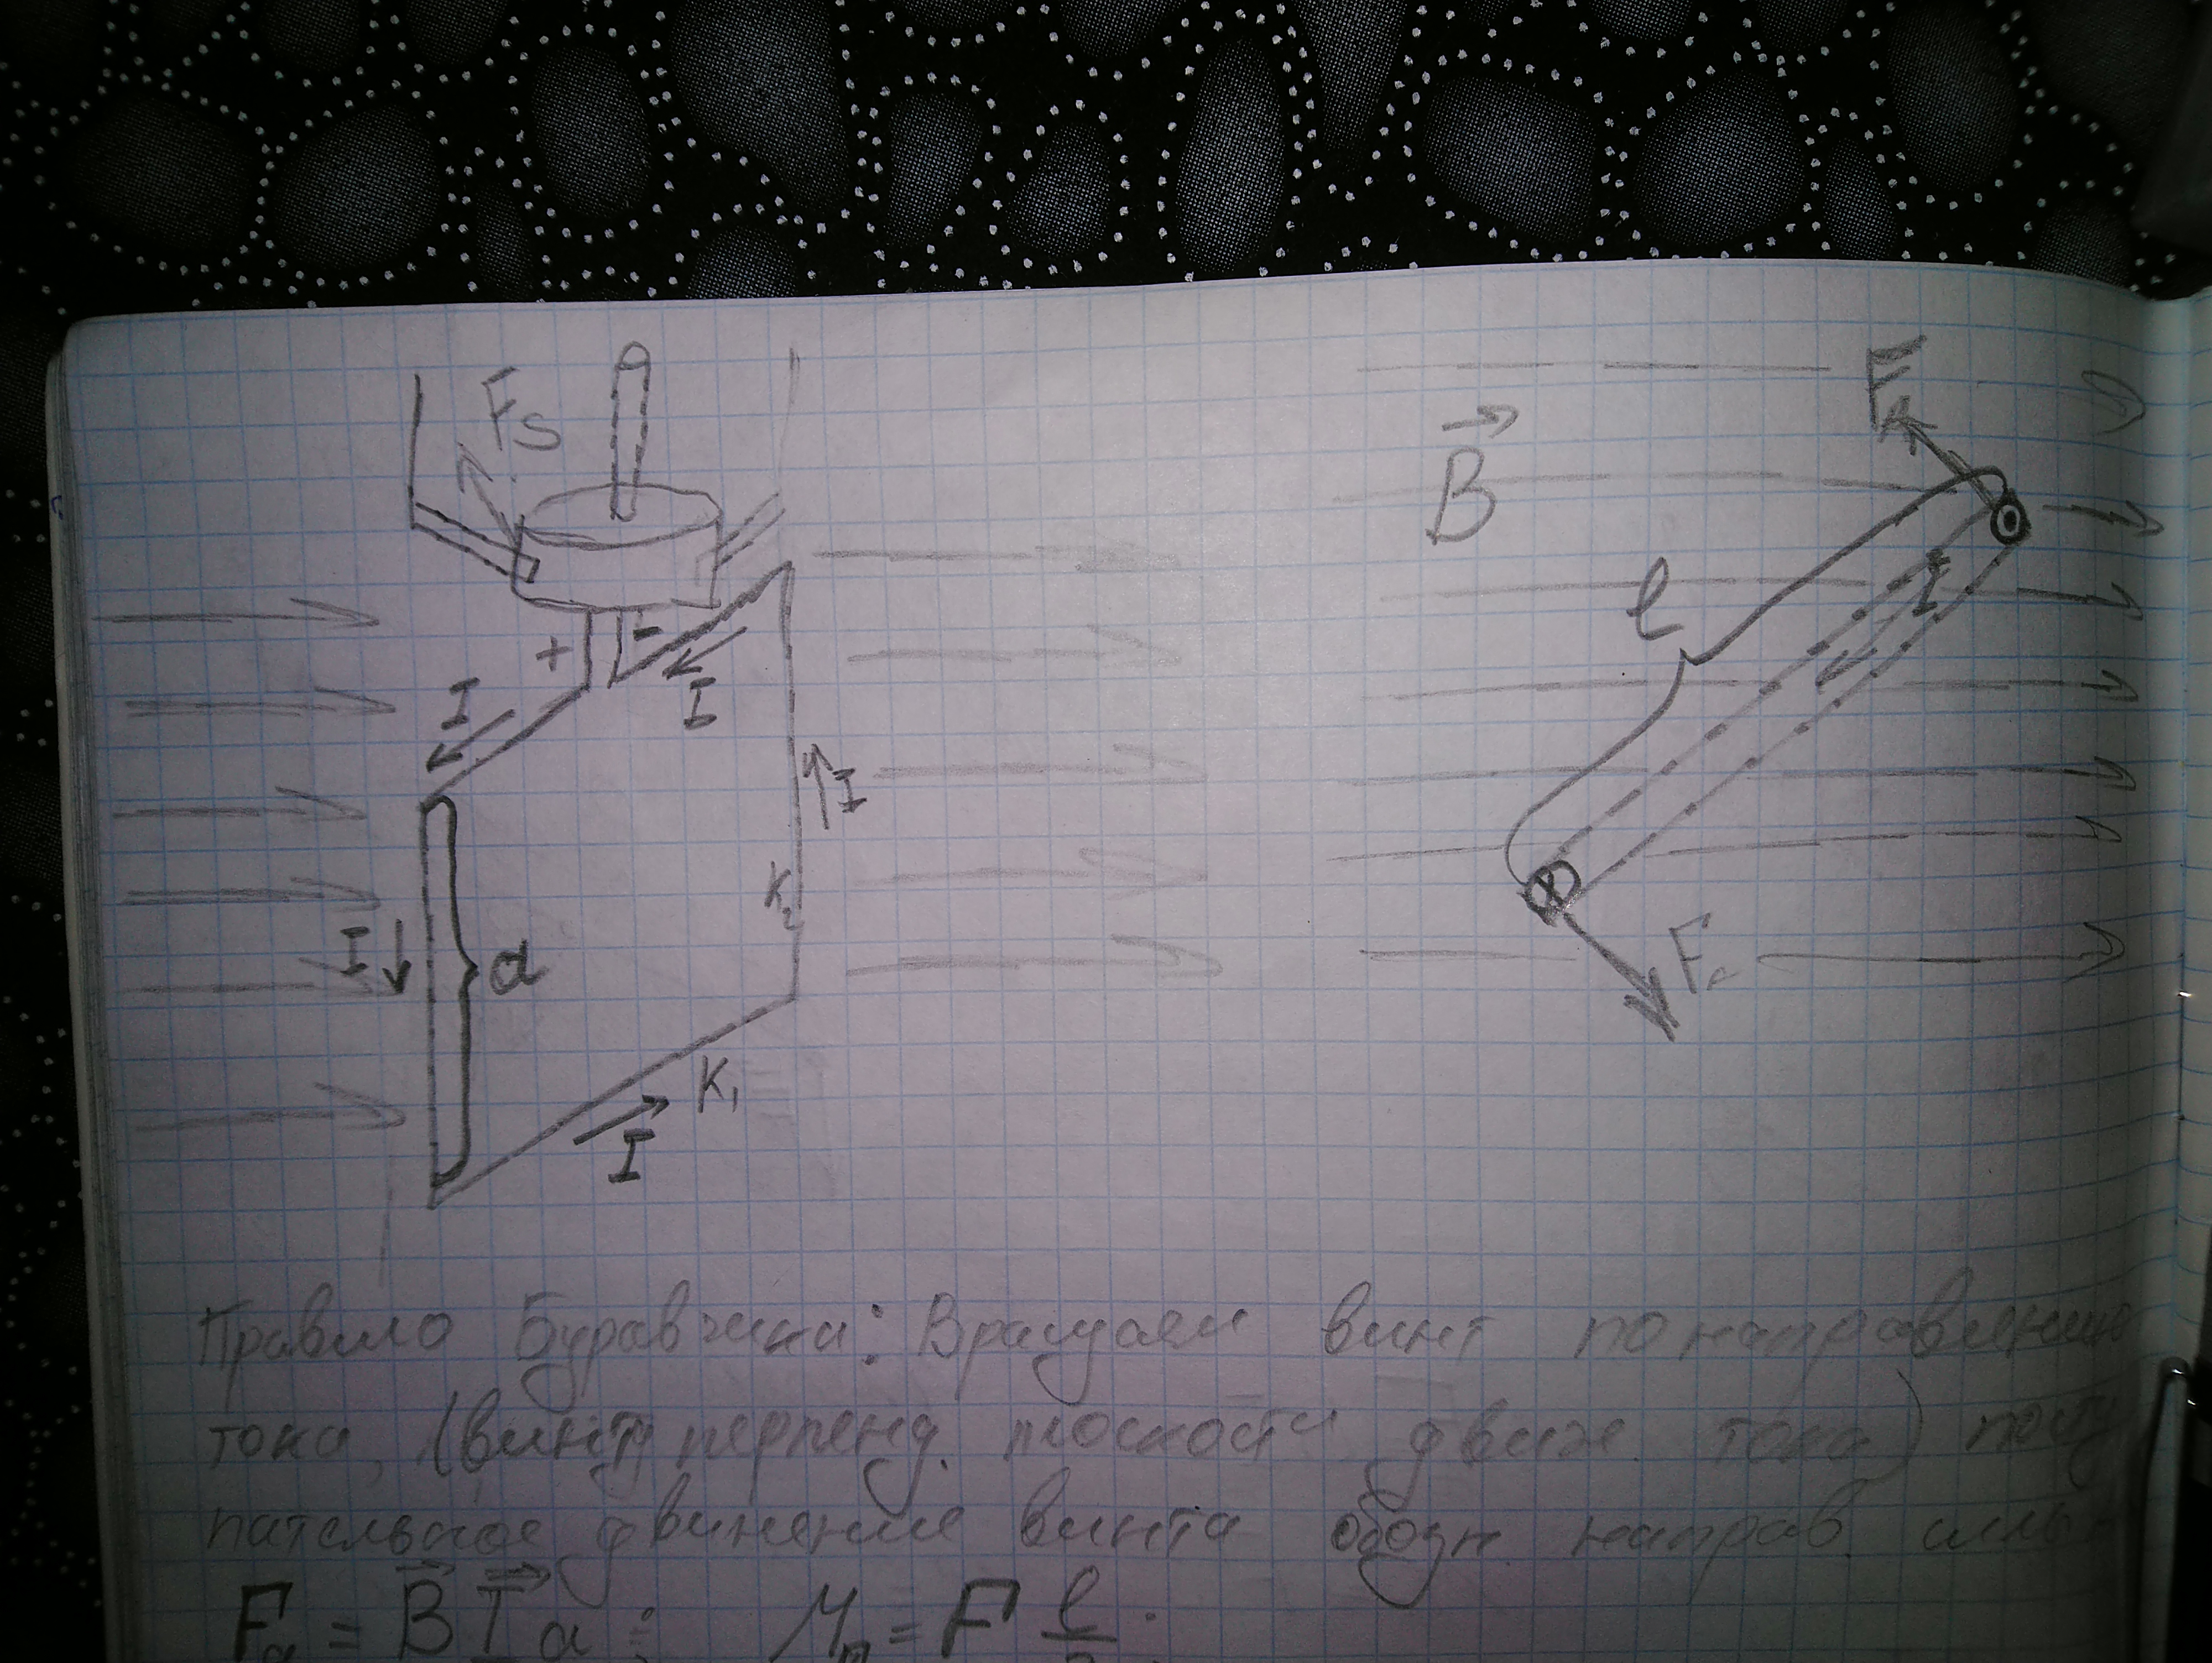 Fs
+ -
I
I
I
a
I
K₂
K₁
I
B
F
l
I
F
Правило Буравчика: Вращаем винт по направлению
тока, (винт перпенд. плоскости движ. тока)
пательное движение винта обозн. направ. силы
Fa = B I a ; Mп = F l